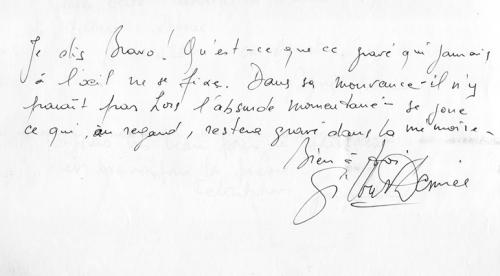 Je dis Bravo! Qu'est-ce que ce gravé qui jamais
à l'œil ne se fixe. Dans sa mouvance - il n'y
paraît pas hors l'absurde momentané - se joue
ce qui, au regard, restera gravé dans la mémoire -
Bien à toi